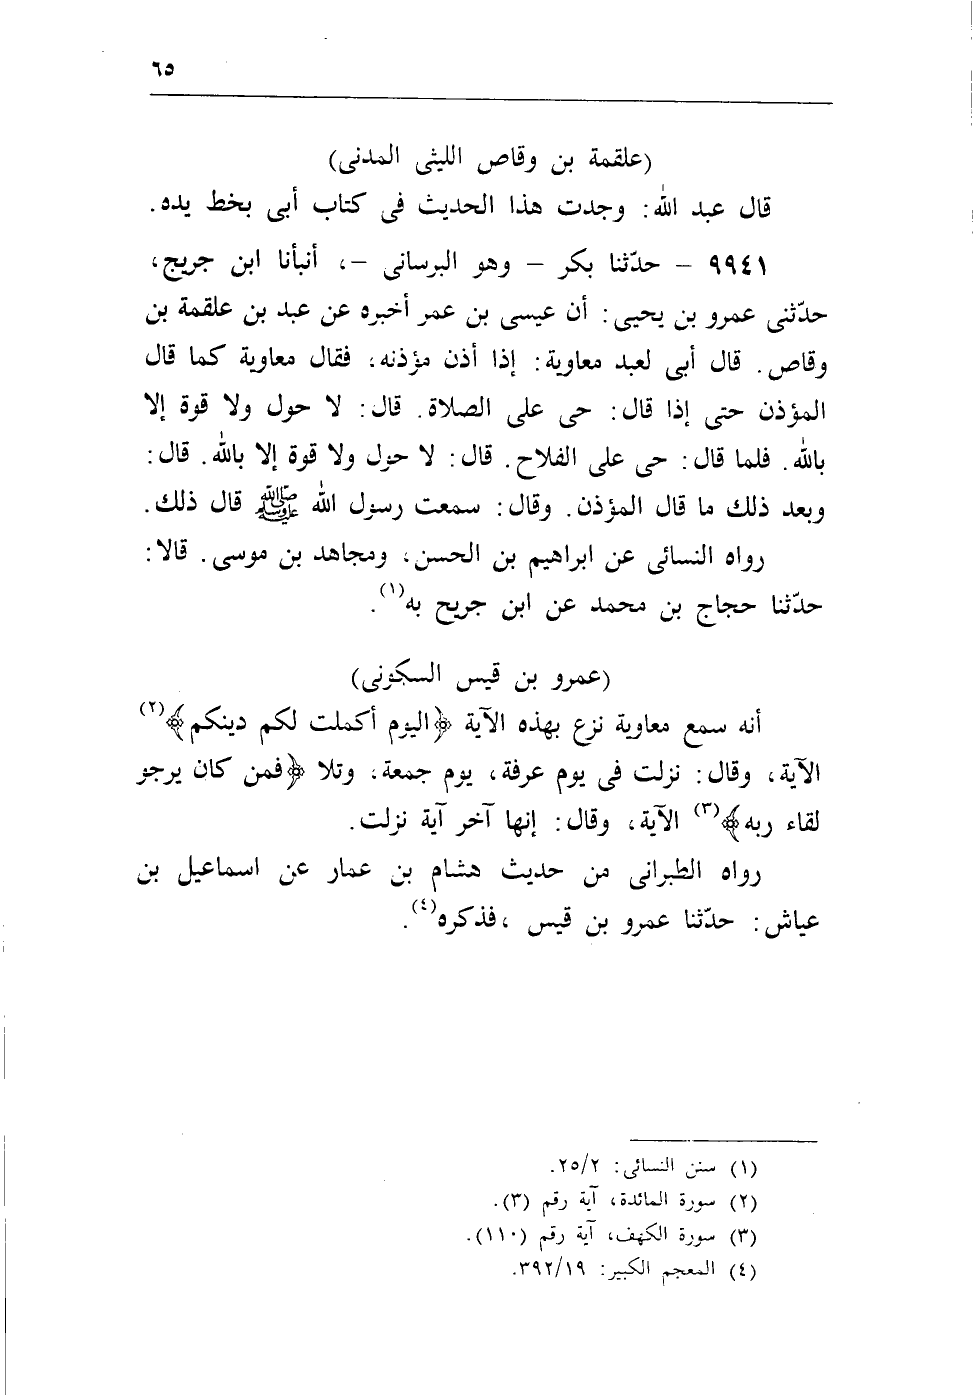 ٦٥
(علقمة بن وقاص الليثى المدنى)
قال عبد الله: وجدت هذا الحديث فى كتاب أبى بخط يده.
٩٩٤١ – حدّثنا بكر – وهو البرسانى –، أنبأنا ابن جريج،
حدّثنى عمرو بن يحيى: أن عيسى بن عمر أخبره عن عبد بن علقمة بن
وقاص. قال أبى لعبد معاوية: إذا أذن مؤذنه، فقال معاوية كما قال
المؤذن حتى إذا قال: حى على الصلاة. قال: لا حول ولا قوة إلا
بالله. فلما قال: حى على الفلاح. قال: لا حول ولا قوة إلا بالله. قال:
وبعد ذلك ما قال المؤذن. وقال: سمعت رسول الله ﷺ قال ذلك.
رواه النسائى عن ابراهيم بن الحسن، ومجاهد بن موسى. قالا:
حدّثنا حجاج بن محمد عن ابن جريح به(١).
(عمرو بن قيس السكونى)
أنه سمع معاوية نزع بهذه الآية ﴿اليوم أكملت لكم دينكم﴾(٢)
الآية، وقال: نزلت فى يوم عرفة، يوم جمعة، وتلا ﴿فمن كان يرجو
لقاء ربه﴾(٣) الآية، وقال: إنها آخر آية نزلت.
رواه الطبرانى من حديث هشام بن عمار عن اسماعيل بن
عياش: حدّثنا عمرو بن قيس ،فذكره(٤).
(١) سنن النسائى: ٢٥/٢.
(٢) سورة المائدة، آية رقم (٣).
(٣) سورة الكهف، آية رقم (١١٠).
(٤) المعجم الكبير: ٣٩٢/١٩.